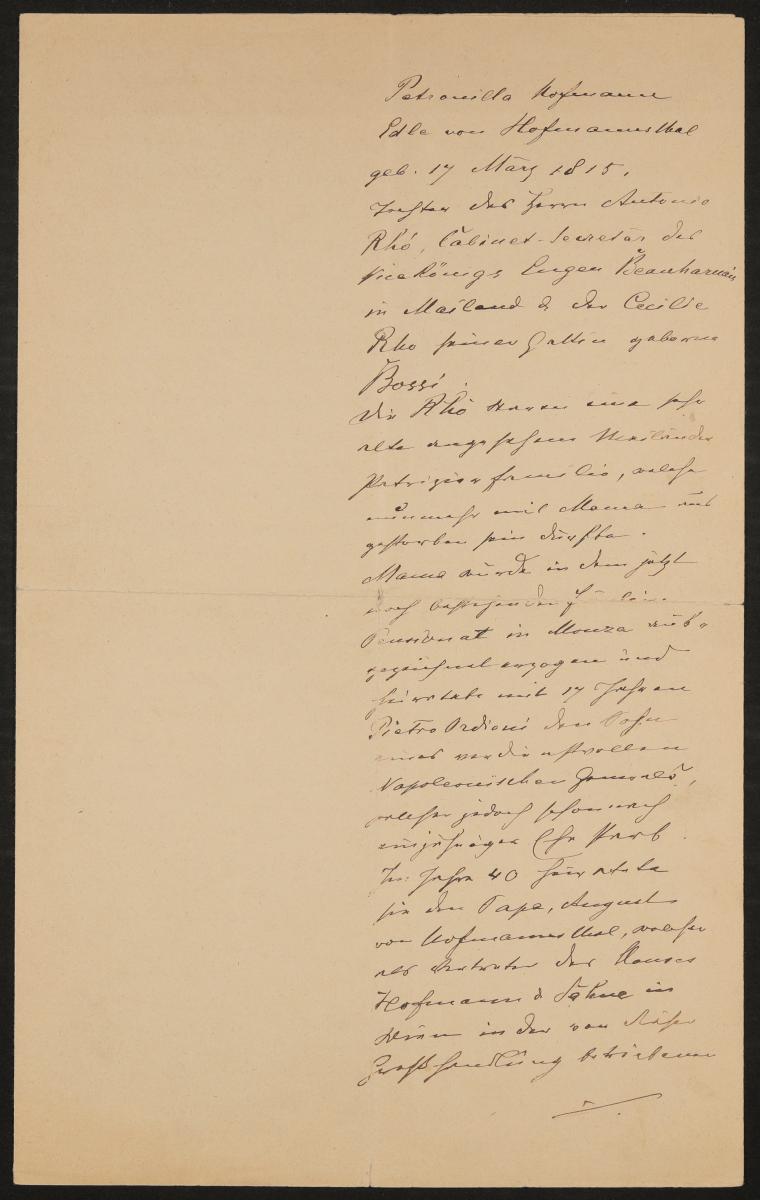 Petronilla Hofmann
Edle von Hofmannsthal
geb. 17 März 1815,
Tochter des Herrn Antonio
Rhó, Cabinet-Secretär des
Vicekönigs Eugen Beauharnais
in Mailand & der Cecilie
Rho seiner Gattin geborne
Bossi.
Die Rhó waren eine sehr
alte angesehene Mailänder
Patrizierfamilie, welche
nunmehr mit Mama aus
gestorben sein dürfte.
Mama wurde in dem jetzt
noch bestehenden
Pensionat in Monza aus-
gezeichnet erzogen und
heiratete mit 17 Jahren
Pietro Ordioni den Sohn
eines verdienstvollen
Napoleonischen Generals,
welcher jedoch schon nach
einjähriger Ehe starb.
Im Jahre 40 heiratete
sie den Papa, August
von Hofmannsthal, welcher
als Vertreter des Hauses
Hofmann & Söhne in
Wien in der von dieser
Großhandlung betriebenen
./.